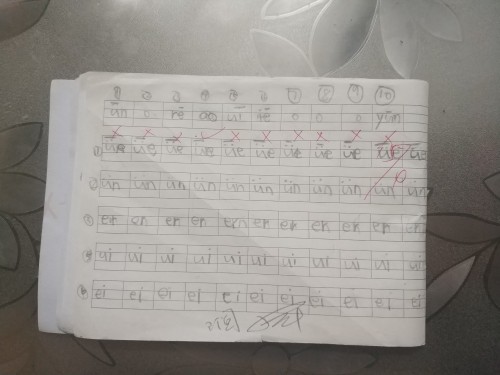 ① ② ③ ④ ⑤ ⑥ ⑦ ⑧ ⑨ ⑩
ǖn o rē ao uī iē o o o yūn
① üe üe üe üe üe üe üe üe üe üe üe
② ün ün ün ün ün ün ün ün ün ün ün
③ en en en en en en en en en en en
④ ui ui ui ui ui ui ui ui ui ui ui
⑤ ei ei ei ei ei ei ei ei ei ei ei